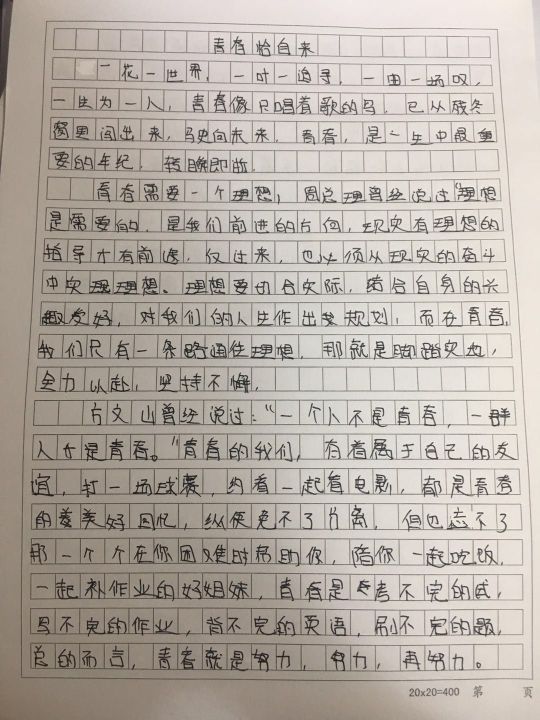 青春恰自来
一花一世界，一叶一追寻，一曲一场叹，
一生为一人，青春像只唱着歌的鸟，已从残冬
窗里闯出来，驶向未来，青春，是一生中最重
要的年纪，转瞬即逝。
青春需要一个理想，周总理曾经说过"理想
是需要的，是我们前进的方向，现实有理想的
指导才有前途，仅过来，也必须从现实的奋斗
中实现理想。理想要切合实际，结合自身的兴
趣爱好，对我们的人生作出规划，而在青春，
我们只有一条路通往理想，那就是脚踏实地，
全力以赴，坚持不懈。
方文山曾经说过："一个人不是青春，一群
人才是青春。"青春的我们，有着属于自己的友
谊，打一场比赛，约着一起看电影，都是青春
的美好回忆，纵使免不了分离，但也忘不了
那一个个在你困难时帮助你，陪你一起吃饭，
一起补作业的好姐妹，青春是考不完的试，
写不完的作业，背不完的英语，刷不完的题，
总的而言，青春就是努力，努力，再努力。
20x20=400 第 页